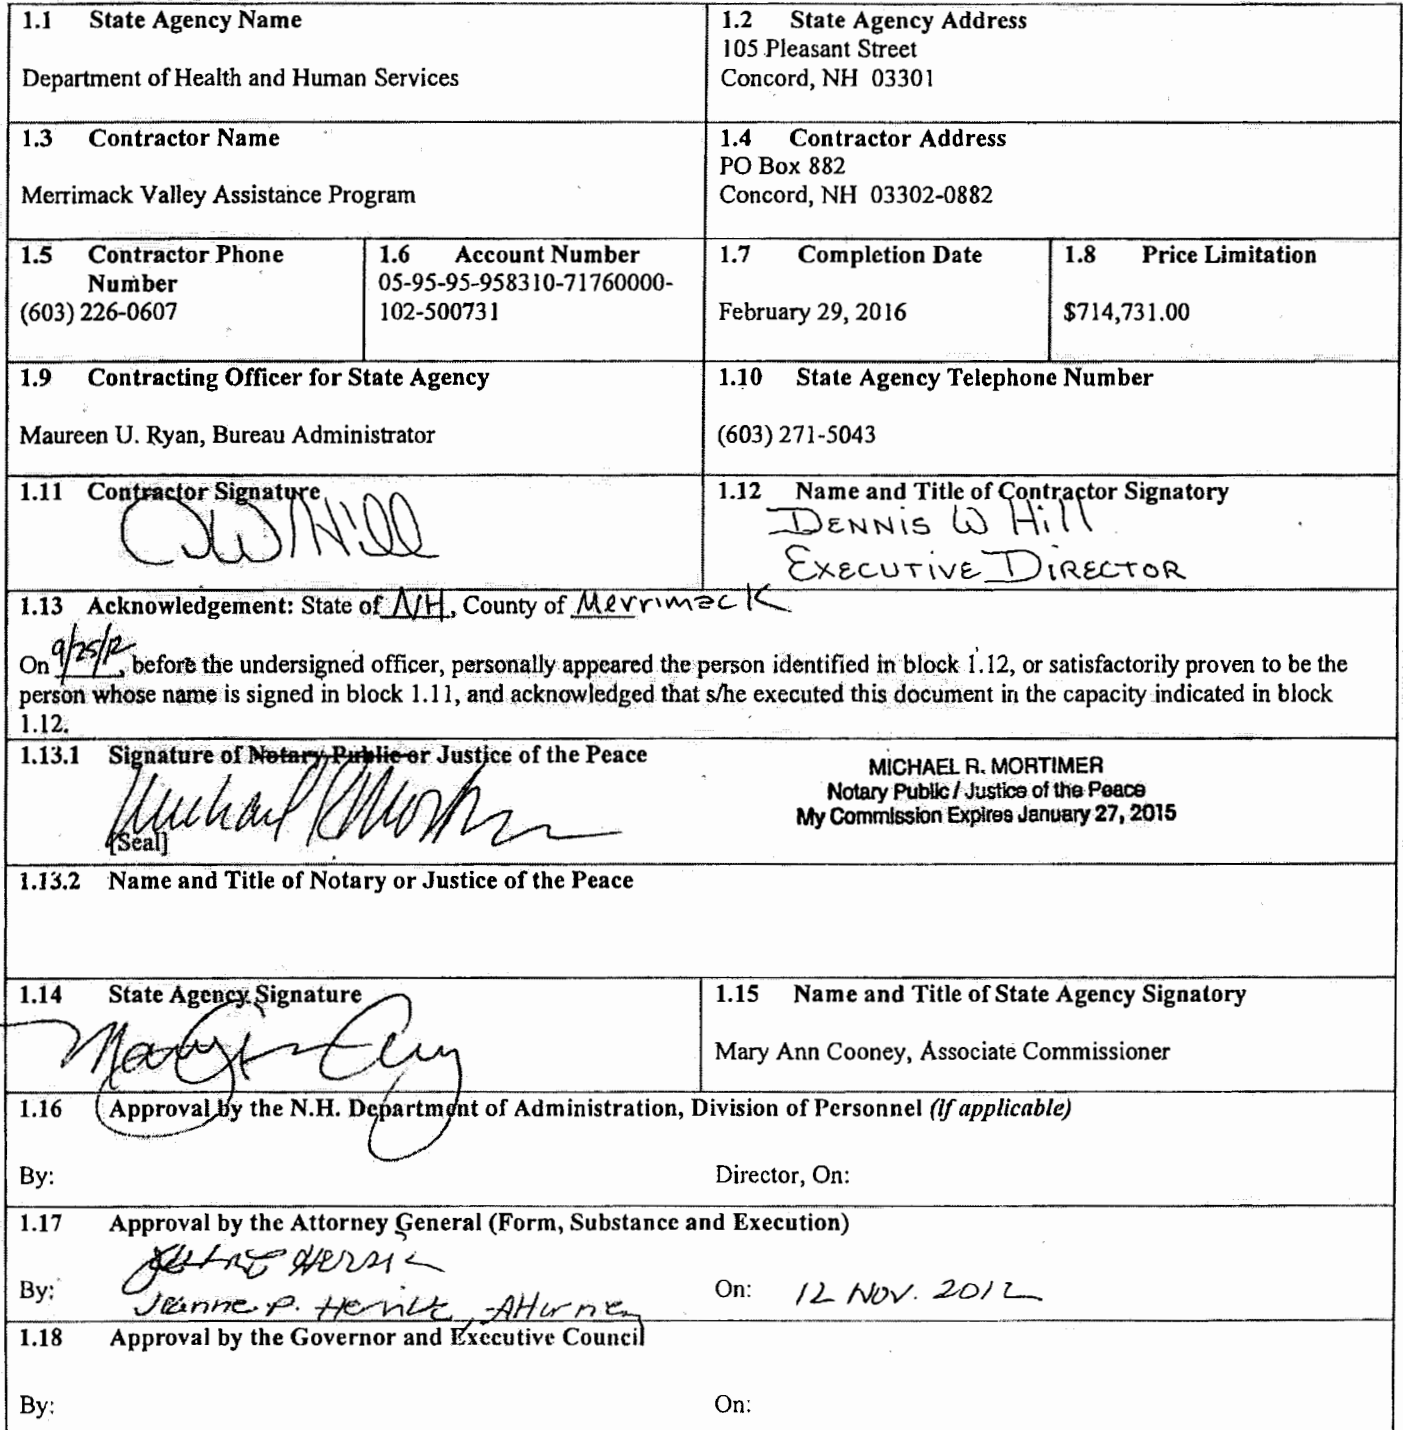 1.1 State Agency Name
Department of Health and Human Services
1.2 State Agency Address
105 Pleasant Street
Concord, NH 03301
1.3 Contractor Name
Merrimack Valley Assistance Program
1.4 Contractor Address
PO Box 882
Concord, NH 03302-0882
1.5 Contractor Phone
Number
(603) 226-0607
1.6 Account Number
05-95-95-958310-71760000-
102-500731
1.7 Completion Date
February 29, 2016
1.8 Price Limitation
$714,731.00
1.9 Contracting Officer for State Agency
Maureen U. Ryan, Bureau Administrator
1.10 State Agency Telephone Number
(603) 271-5043
1.11 Contractor Signature
DW Hill
1.12 Name and Title of Contractor Signatory
DENNIS W Hill
EXECUTIVE DIRECTOR
1.13 Acknowledgement: State of NH, County of Merrimack
On 9/25/12, before the undersigned officer, personally appeared the person identified in block 1.12, or satisfactorily proven to be the
person whose name is signed in block 1.11, and acknowledged that s/he executed this document in the capacity indicated in block
1.12.
1.13.1 Signature of Notary Public or Justice of the Peace
Michael R Mortimer
[Seal]
MICHAEL R. MORTIMER
Notary Public / Justice of the Peace
My Commission Expires January 27, 2015
1.13.2 Name and Title of Notary or Justice of the Peace
1.14 State Agency Signature
1.15 Name and Title of State Agency Signatory
Mary Ann Cooney, Associate Commissioner
1.16 Approval by the N.H. Department of Administration, Division of Personnel (if applicable)
By:
Director, On:
1.17 Approval by the Attorney General (Form, Substance and Execution)
By: Jeanne P. Herrick, Attorney
On: 12 Nov. 2012
1.18 Approval by the Governor and Executive Council
By:
On: